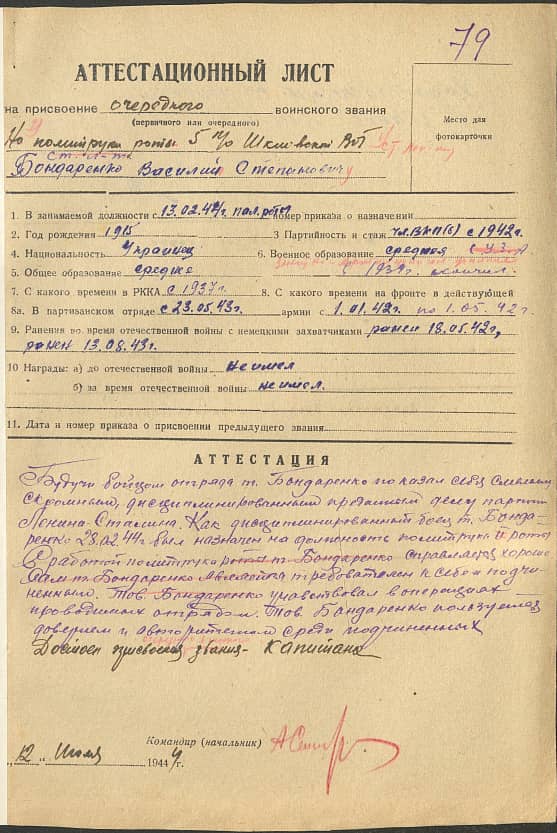 79
АТТЕСТАЦИОННЫЙ ЛИСТ
на присвоение очередного воинского звания
(первичного или очередного)
Место для
фотокарточки
политрука роты 5 п/о Шкловской
Бондаренко Василий Степанович
1. В занимаемой должности с 13.02.44г. пол. роты номер приказа о назначении
2. Год рождения 1915 3 Партийность и стаж чл. ВКП(б) с 1942г.
4. Национальность Украинец 6. Военное образование средняя
5. Общее образование средне с 1939г. окончил.
7. С какого времени в РККА с 1937г. 8. С какого времени на фронте в действующей
8а. В партизанском отряде с 23.05.43г. армии с 1.01.42 по 1.05.42г.
9. Ранения во время отечественной войны с немецкими захватчиками ранен 18.05.42г,
ранен 13.08.43г.
10 Награды: а) до отечественной войны не имел
б) за время отечественной войны не имел.
11. Дата и номер приказа о присвоении предыдущего звания
АТТЕСТАЦИЯ
Будучи бойцом отряда т. Бондаренко показал себя смелым,
скромным, дисциплинированным преданным делу партии
Ленина-Сталина. Как дисциплинированный боец т. Бонда-
ренко 23.02.44г был назначен на должность политрука роты
С работой политрука роты т. Бондаренко справлялся хорошо
Сам т. Бондаренко требователен к себе и подчи-
ненным. Тов. Бондаренко участвовал в операциях
проводимых отрядом. Тов. Бондаренко пользуется
доверием и авторитетом среди подчиненных
Достоен присвоения звания - Капитана
Командир (начальник)
„12 „ Июля 1944г.